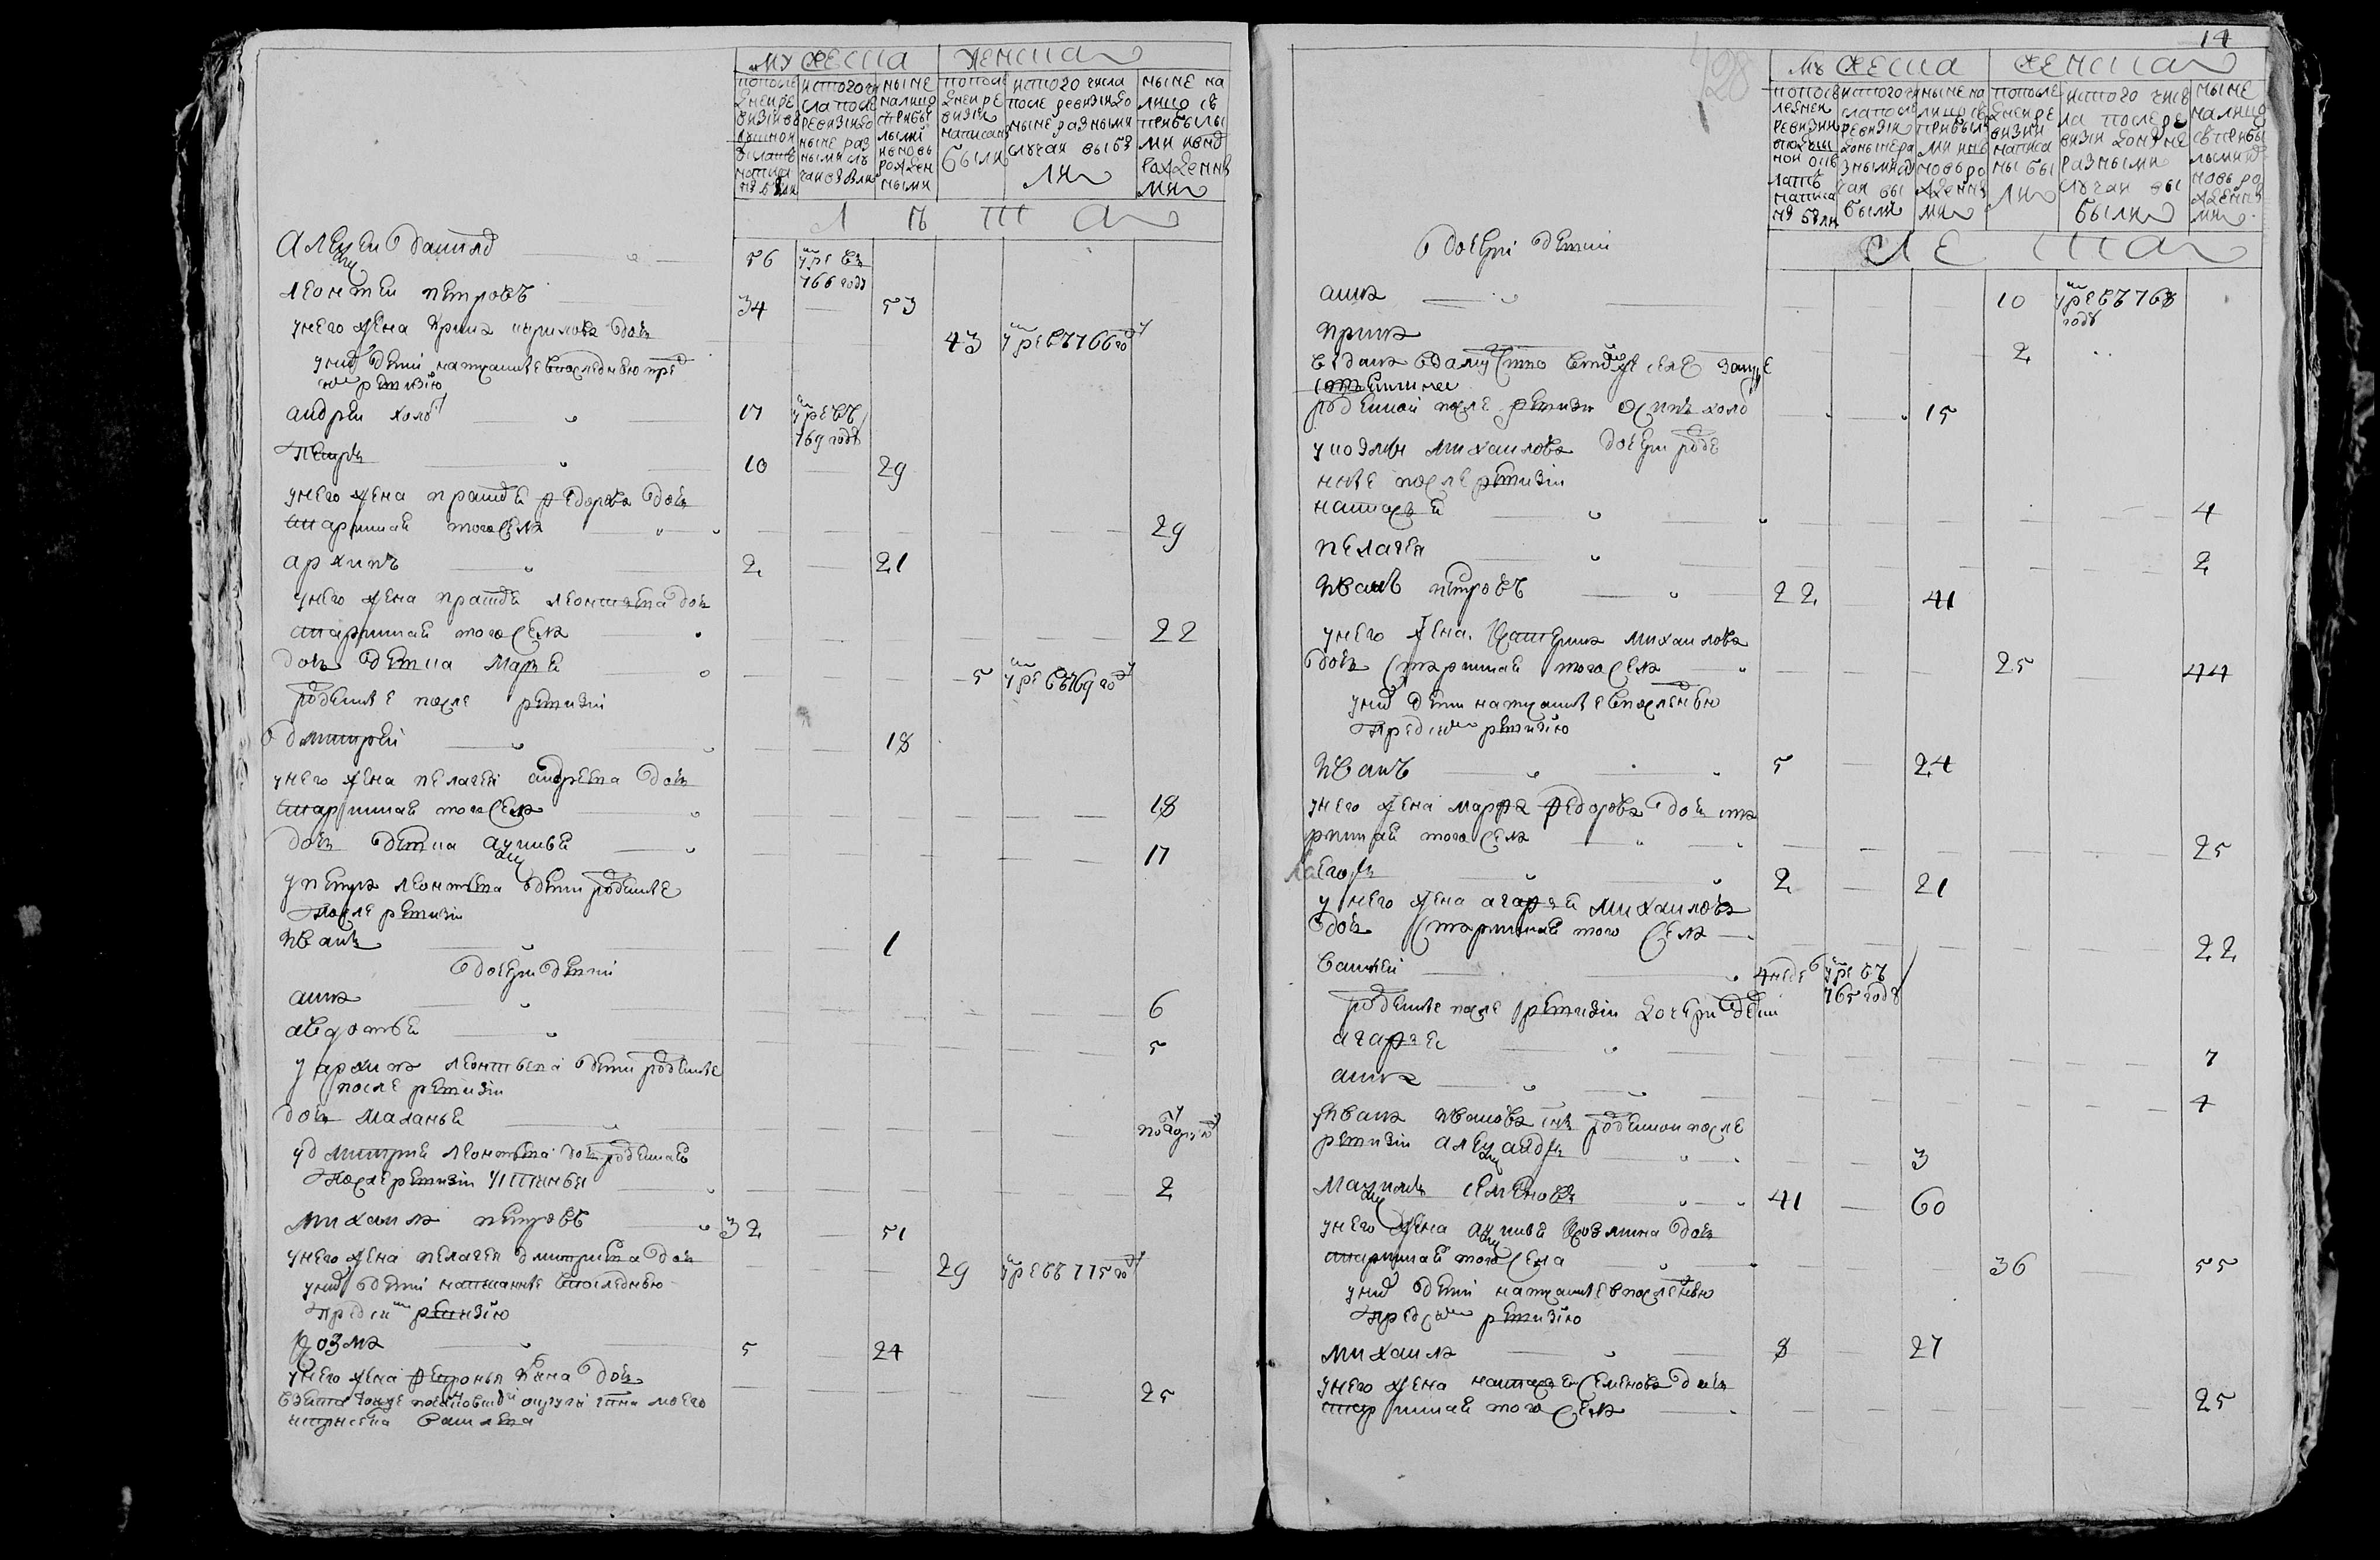 мужеска женска
попослѣдней ревизіи вдушной окладъ написано были
истого числа после ревизіи до ныне разными случаи выбыли
ныне налицо с прибылыми и вновь рожденными
попоследней ревизіи написаны были
истого числа после ревизіи до ныне разными случаи выбыли
ныне налицо с прибылыми и внов рожденными
лѣта
56 умре въ 766 годѣ
леонтеи петровъ 34 53
унего жена ирина кирилова дочь 43 умре въ 766 году
унихъ дети написанные впоследнюю пред
сию ревизию
андреи холостъ 17 умре въ 769 годѣ
петръ 10 29
унего жена федорова дочь
старинная того села 29
архипъ 2 21
унего жена леонтьева дочь
старинная того села 22
дочь девка марья 5 умре въ 769 году
рожденные после ревизіи
дмитреи 18
унего жена пелагея андреева дочь
старинная того села 18
дочь девка аксинья 17
у петра леонтьева дети рожденные
после ревизіи
иванъ 1
дочери девки
анна 6
авдотья 5
у архипа леонтьева дети рожденные
после ревизіи
дочь маланья полугоду
у дмитрия леонтьева дочь рожденная
после ревизіи устинья 2
михаила петровъ 32 51
унего жена пелагея дмитриева дочь 29 умре въ 775 году
унихъ дети написанные впоследнюю
пред сию ревизию
козма 5 24
унего жена дочь
25
василева
14
428
мужеска женска
попоследней ревизии в подушной окладъ написано были
истого числа после ревизіи до ныне разными случаи выбыли
ныне налицо с прибылыми и вновь рожденными
попоследней ревизии написаны были
истого числа после ревизии до ныне разными случаи выбыли
ныне налицо с прибылыми и новь рожденными
лета
дочери девки
анна 10 умре въ 768 годѣ
ирина 2
выдана взамужство
рожденной после ревизи осипъ холостъ 15
у козмы михаилова дочери рожде
нные после ревизіи
настасья 4
пелагея 2
иванъ петровъ 22 41
унего жена катерина михаилова
дочь старинная того села 25 44
унихъ дети написанные впоследнюю
пред сию ревизию
иванъ 5 24
унего жена марфа федорова дочь ста
ринная того села 25
егоръ 2 21
у него жена агафья михаилова
дочь старинная того села 22
василей 4 недель умре въ 765 годѣ
рожденные после ревизіи дочери девки
агафья 7
анна 4
у ивана иванова сынъ рожденной после
ревизіи александръ 3
максимъ семеновъ 41 60
унего жена аксинья козмина дочь
старинная того села 36 55
унихъ дети написанные впоследнюю
пред сию ревизию
михаила 8 27
унего жена настасья семенова дочь
старинная того села 25